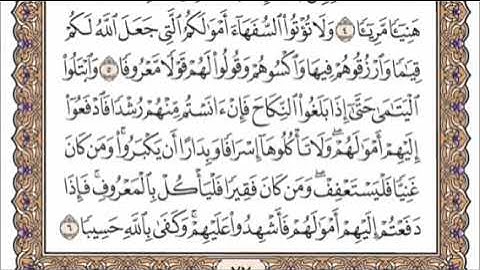 هَنِيٓـٔٗا مَّرِيٓـٔٗا ٤ وَلَا تُؤۡتُواْ ٱلسُّفَهَآءَ أَمۡوَٰلَكُمُ ٱلَّتِي جَعَلَ ٱللَّهُ لَكُمۡ
قِيَٰمٗا وَٱرۡزُقُوهُمۡ فِيهَا وَٱكۡسُوهُمۡ وَقُولُواْ لَهُمۡ قَوۡلٗا مَّعۡرُوفٗا ٥ وَٱبۡتَلُواْ
ٱلۡيَتَٰمَىٰ حَتَّىٰٓ إِذَا بَلَغُواْ ٱلنِّكَاحَ فَإِنۡ ءَانَسۡتُم مِّنۡهُمۡ رُشۡدٗا فَٱدۡفَعُوٓاْ
إِلَيۡهِمۡ أَمۡوَٰلَهُمۡۖ وَلَا تَأۡكُلُوهَآ إِسۡرَافٗا وَبِدَارًا أَن يَكۡبَرُواْۚ وَمَن كَانَ
غَنِيّٗا فَلۡيَسۡتَعۡفِفۡۖ وَمَن كَانَ فَقِيرٗا فَلۡيَأۡكُلۡ بِٱلۡمَعۡرُوفِۚ فَإِذَا
دَفَعۡتُمۡ إِلَيۡهِمۡ أَمۡوَٰلَهُمۡ فَأَشۡهِدُواْ عَلَيۡهِمۡۚ وَكَفَىٰ بِٱللَّهِ حَسِيبٗا ٦
٧٧